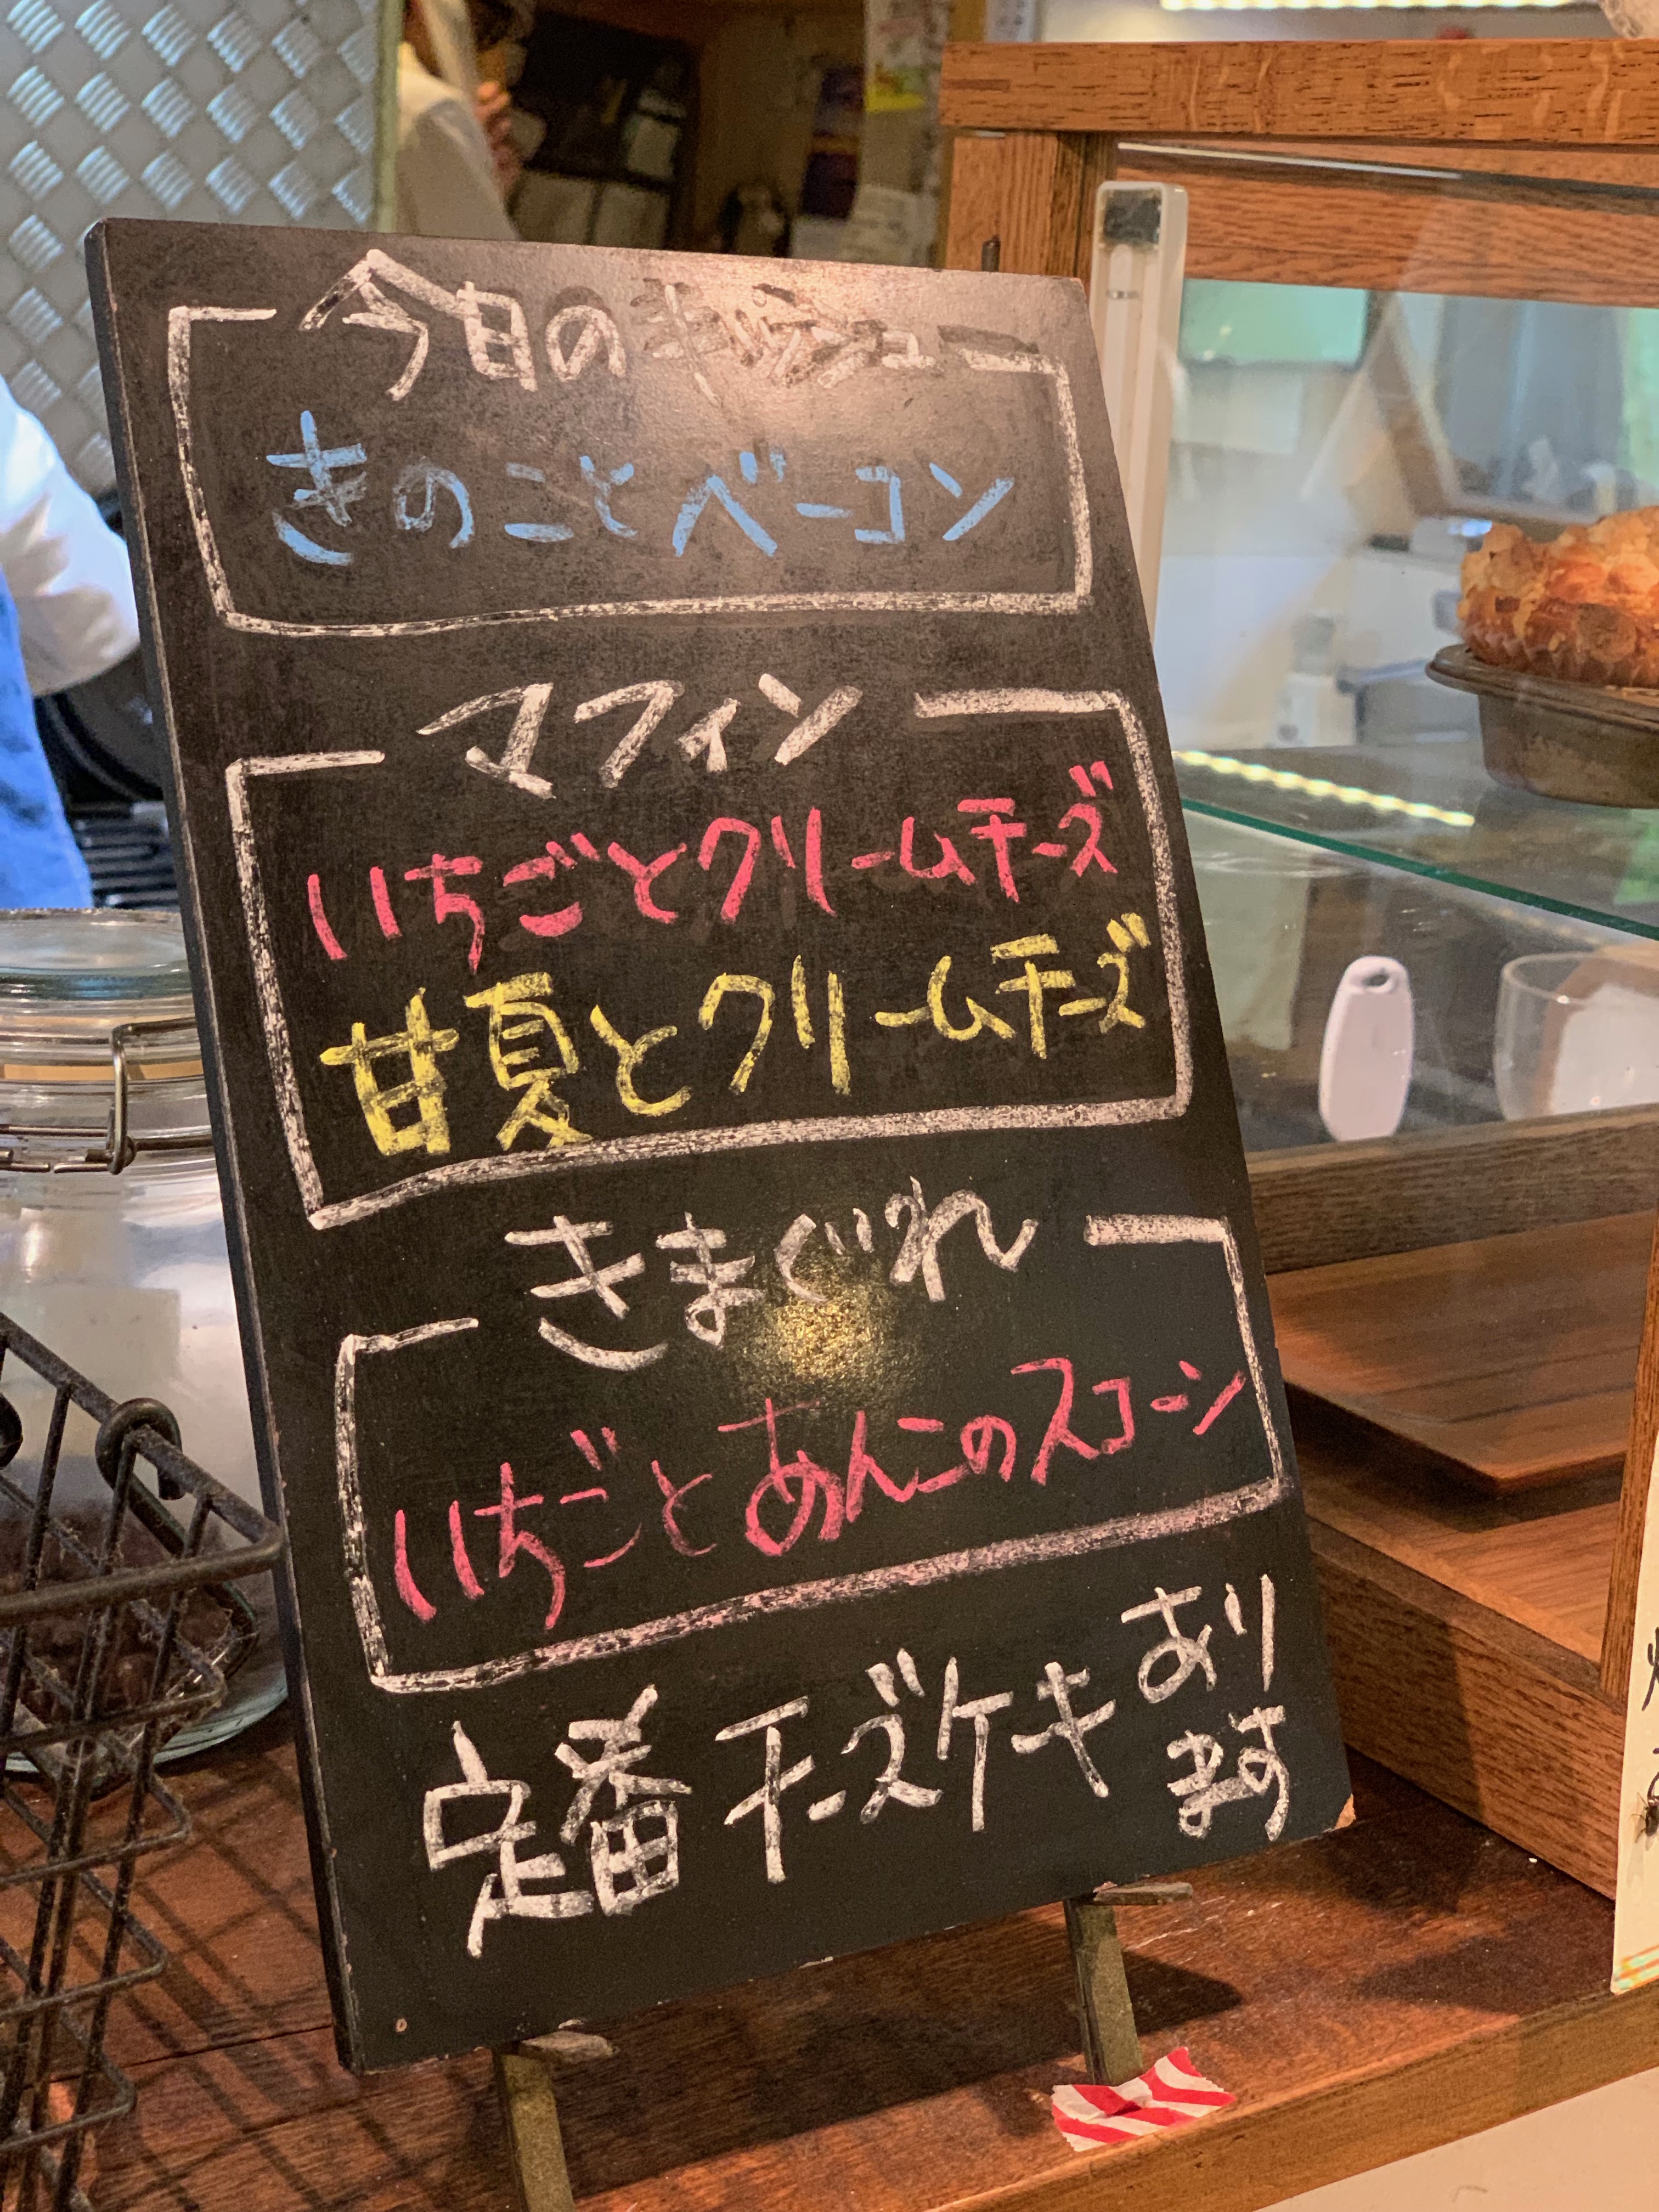 今日のキッシュ
きのことベーコン
マフィン
いちごとクリームチーズ
甘夏とクリームチーズ
きまぐれ
いちごとあんこのスコーン
定番 チーズケーキ あります